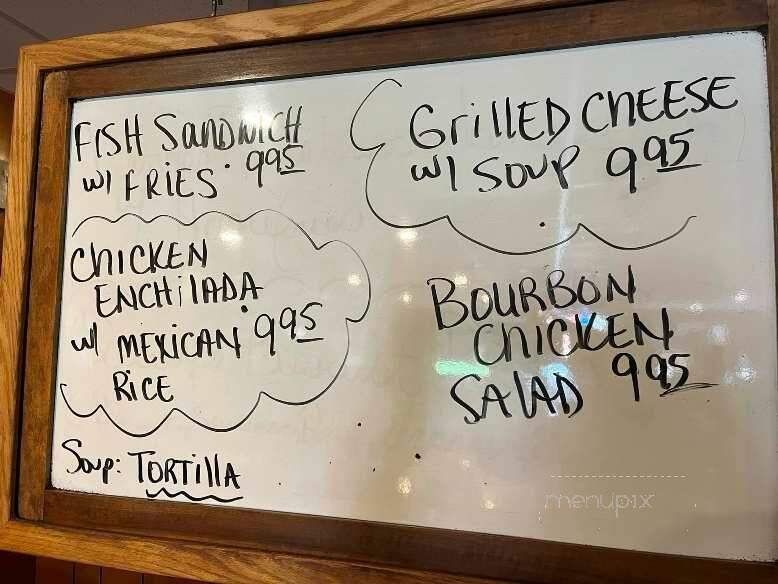 FISH SANDWICH
W/ FRIES 995
GrillED CHEESE
W/ SOUP 995
CHICKEN
ENCHilADA
W/ MEXICAN 995
RiCE
BOURBON
CHICKEN
SALAD 995
Soup: TORTillA
menupix